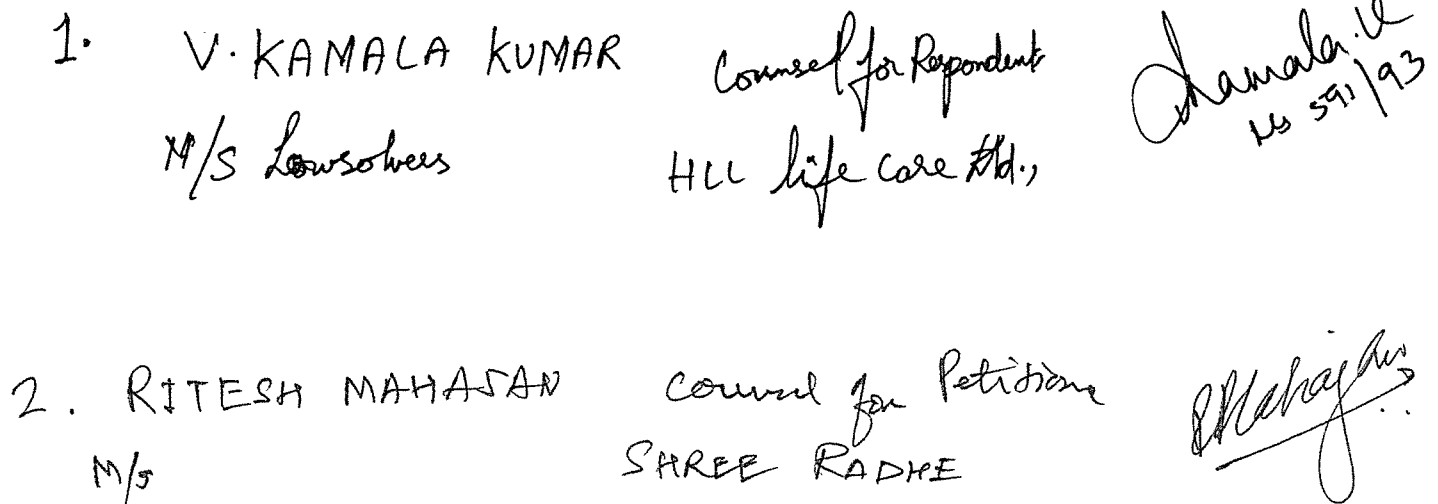 1. V. KAMALA KUMAR Counsel for Respondent Kamala.V
M/S Lawsolvers HLL life care Ltd., MS 591/93
2. RITESH MAHAJAN Counsel for Petitioner RMahajan
M/S SHREE RADHE